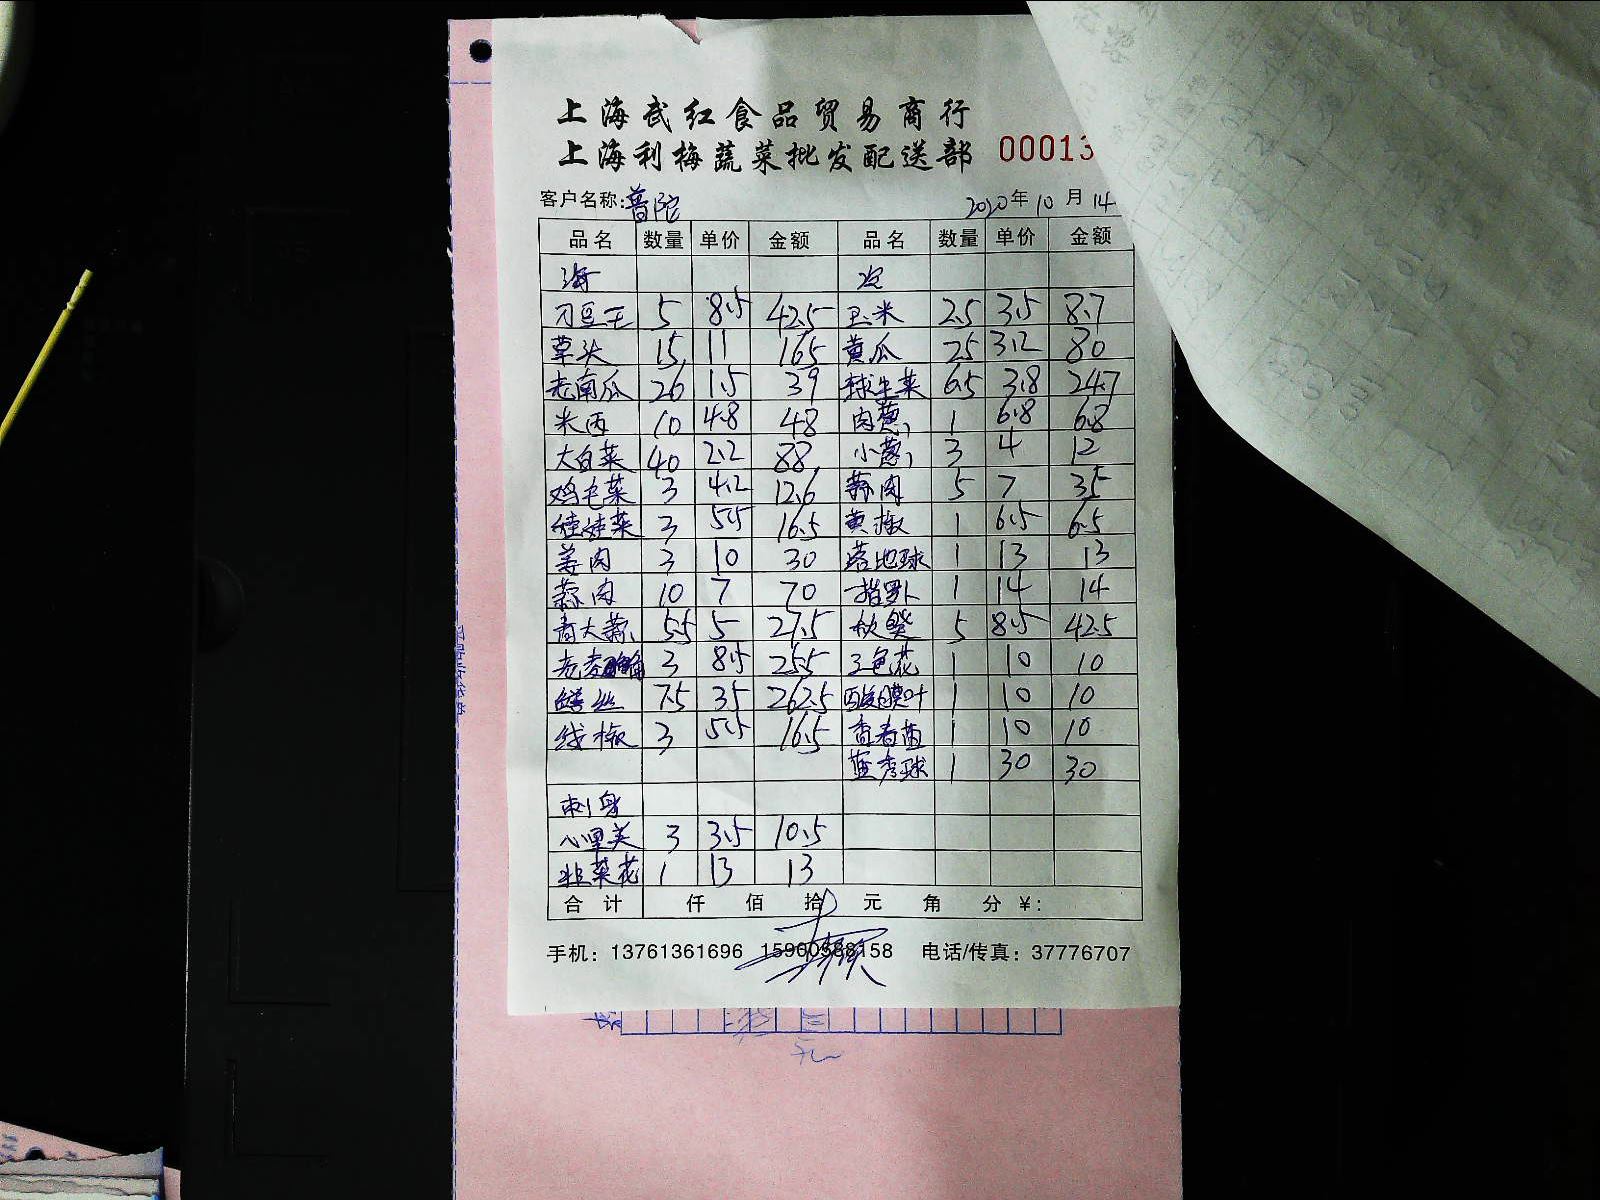 上海武红食品贸易商行
上海利梅蔬菜批发配送部 00013
客户名称:普陀 2020年10月14
品名 数量 单价 金额 品名 数量 单价 金额
海
刀豆王 5 8.5 42.5 玉米 2.5 3.5 8.7
草头 15 11 165 黄瓜 25 3.2 80
老南瓜 26 1.5 39 球生菜 6.5 3.8 24.7
米西 10 4.8 48 肉葱 1 6.8 6.8
大白菜 40 2.2 88 小葱 3 4 12
鸡毛菜 3 4.2 12.6 蒜肉 5 7 35
娃娃菜 3 5.5 16.5 黄椒 1 6.5 6.5
姜肉 3 10 30 落地球 1 13 13
蒜肉 10 7 70 指萝卜 1 14 14
青大蒜 5.5 5 27.5 秋葵 5 8.5 42.5
3 8.5 25.5 三色花 1 10 10
鳝丝 7.5 35 262.5 酸膜叶 1 10 10
线椒 3 5.5 16.5 1 10 10
1 30 30
刺身
心里美 3 3.5 10.5
韭菜花 1 13 13
合计 仟 佰 拾 元 角 分 ¥:
手机: 13761361696 15900588158 电话/传真: 37776707